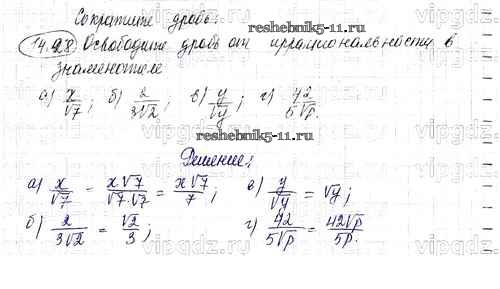 Сократите дробь.
reshebnik5-11.ru
14.28 Освободите дробь от иррациональности в
знаменателе
а) x/√7; б) 2/3√2; в) y/√y; г) 42/5√p.
reshebnik5-11.ru
Решение:
а) x/√7 = x√7/√7·√7 = x√7/7; в) y/√y = √y;
б) 2/3√2 = √2/3; г) 42/5√p = 42√p/5p.